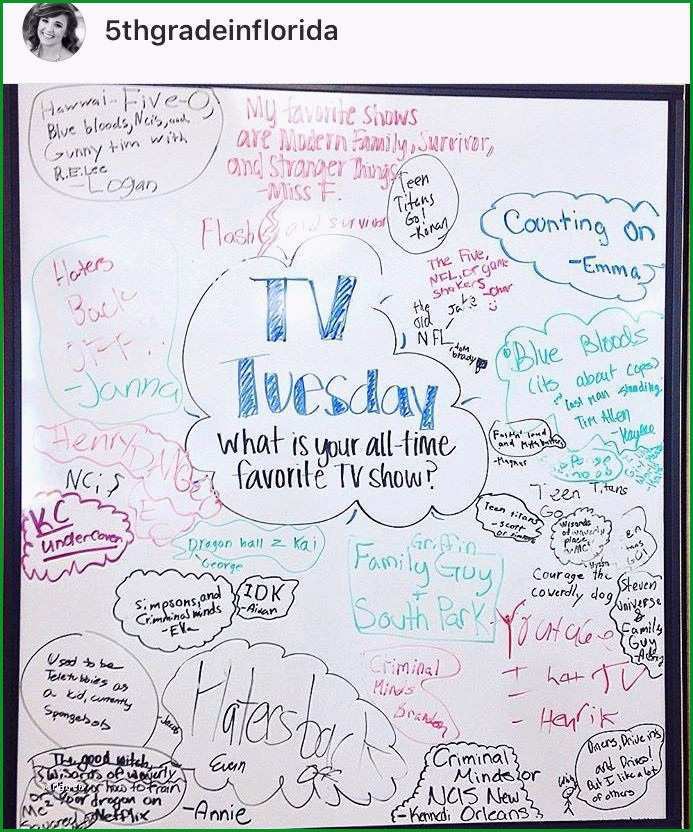 5thgradeinflorida
Hawwai-Five-O,
Blue bloods, Ncis, and
Gunny tim with
R.E.Lee
-Logan
My favorite shows
are Modern Family, Survivor,
and Stranger Things
-Miss F.
Teen
Titans
Go!
-Ronan
Flash and survivor
Counting On
-Emma
The Five,
NFL, or game
shakers
Haters
Back
OFF
-Janna
the
old
NFL
Jake
tom
brady
TV
Tuesday
What is your all-time
favorite TV show?
Blue Bloods
(its about cops)
last man standing
Tim Allen
-Kaylee
Henry
NCiS
KC
undercover
Teen Titans
Go
Teen titans
-Scott
Wizards
of waverly
place
Dragon ball z Kai
George
Griffin
Family Guy
+
South Park
Courage the
coverdly dog
Steven
universe
&
Family
Guy
Simpsons, and
Crimminal minds
-Ella
IDK
-Aidan
Youtube
I hat TV
- Henrik
Used to be
Teletubbies as
a kid, currently
Spongebob
-Jacob
Haters back
off
Evern
-Annie
Criminal
Minds
Brandon
The good witch,
Wizards of waverly
or how to train
your dragon on
Netflix
Me
Squared
Criminal
Minds or
NCIS New
- Kennadi Orleans
Diners, Drive ins
and Drives!
But I like a lot
of others